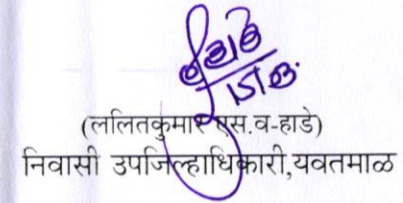 (ललितकुमार एस.व-हाडे)
निवासी उपजिल्हाधिकारी,यवतमाळ